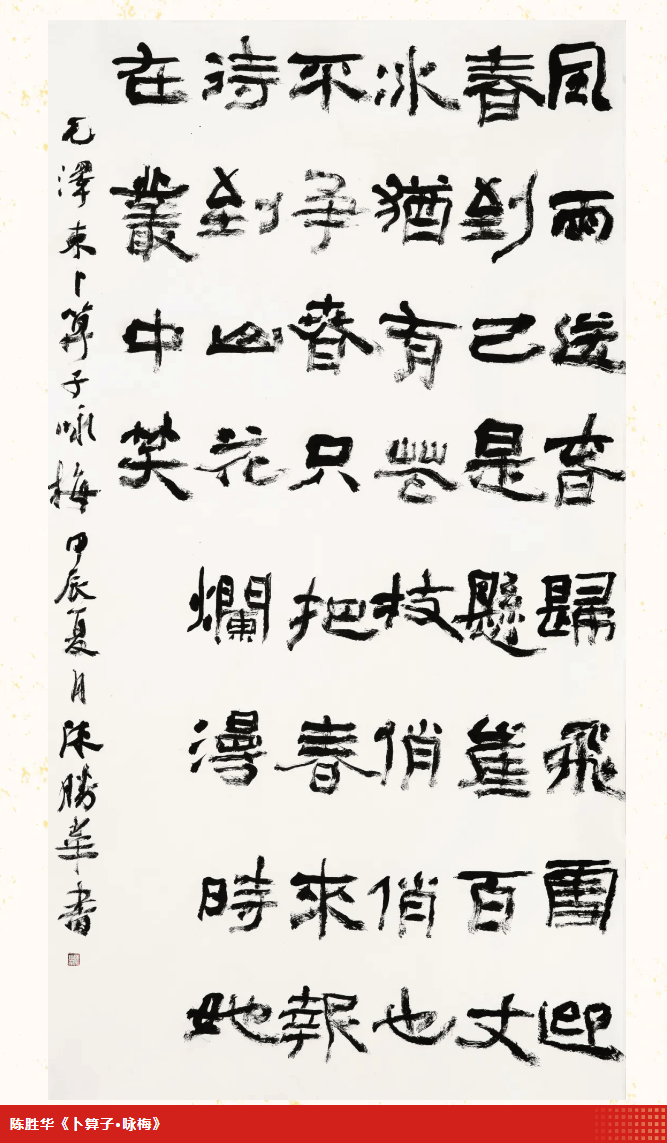 風雨送春歸飛雪迎
春到已是懸崖百丈
冰猶有花枝俏俏也
不争春只把春來報
待到山花爛漫時她
在叢中笑
毛澤東卜算子咏梅甲辰夏月陳勝華書
陈胜华《卜算子·咏梅》